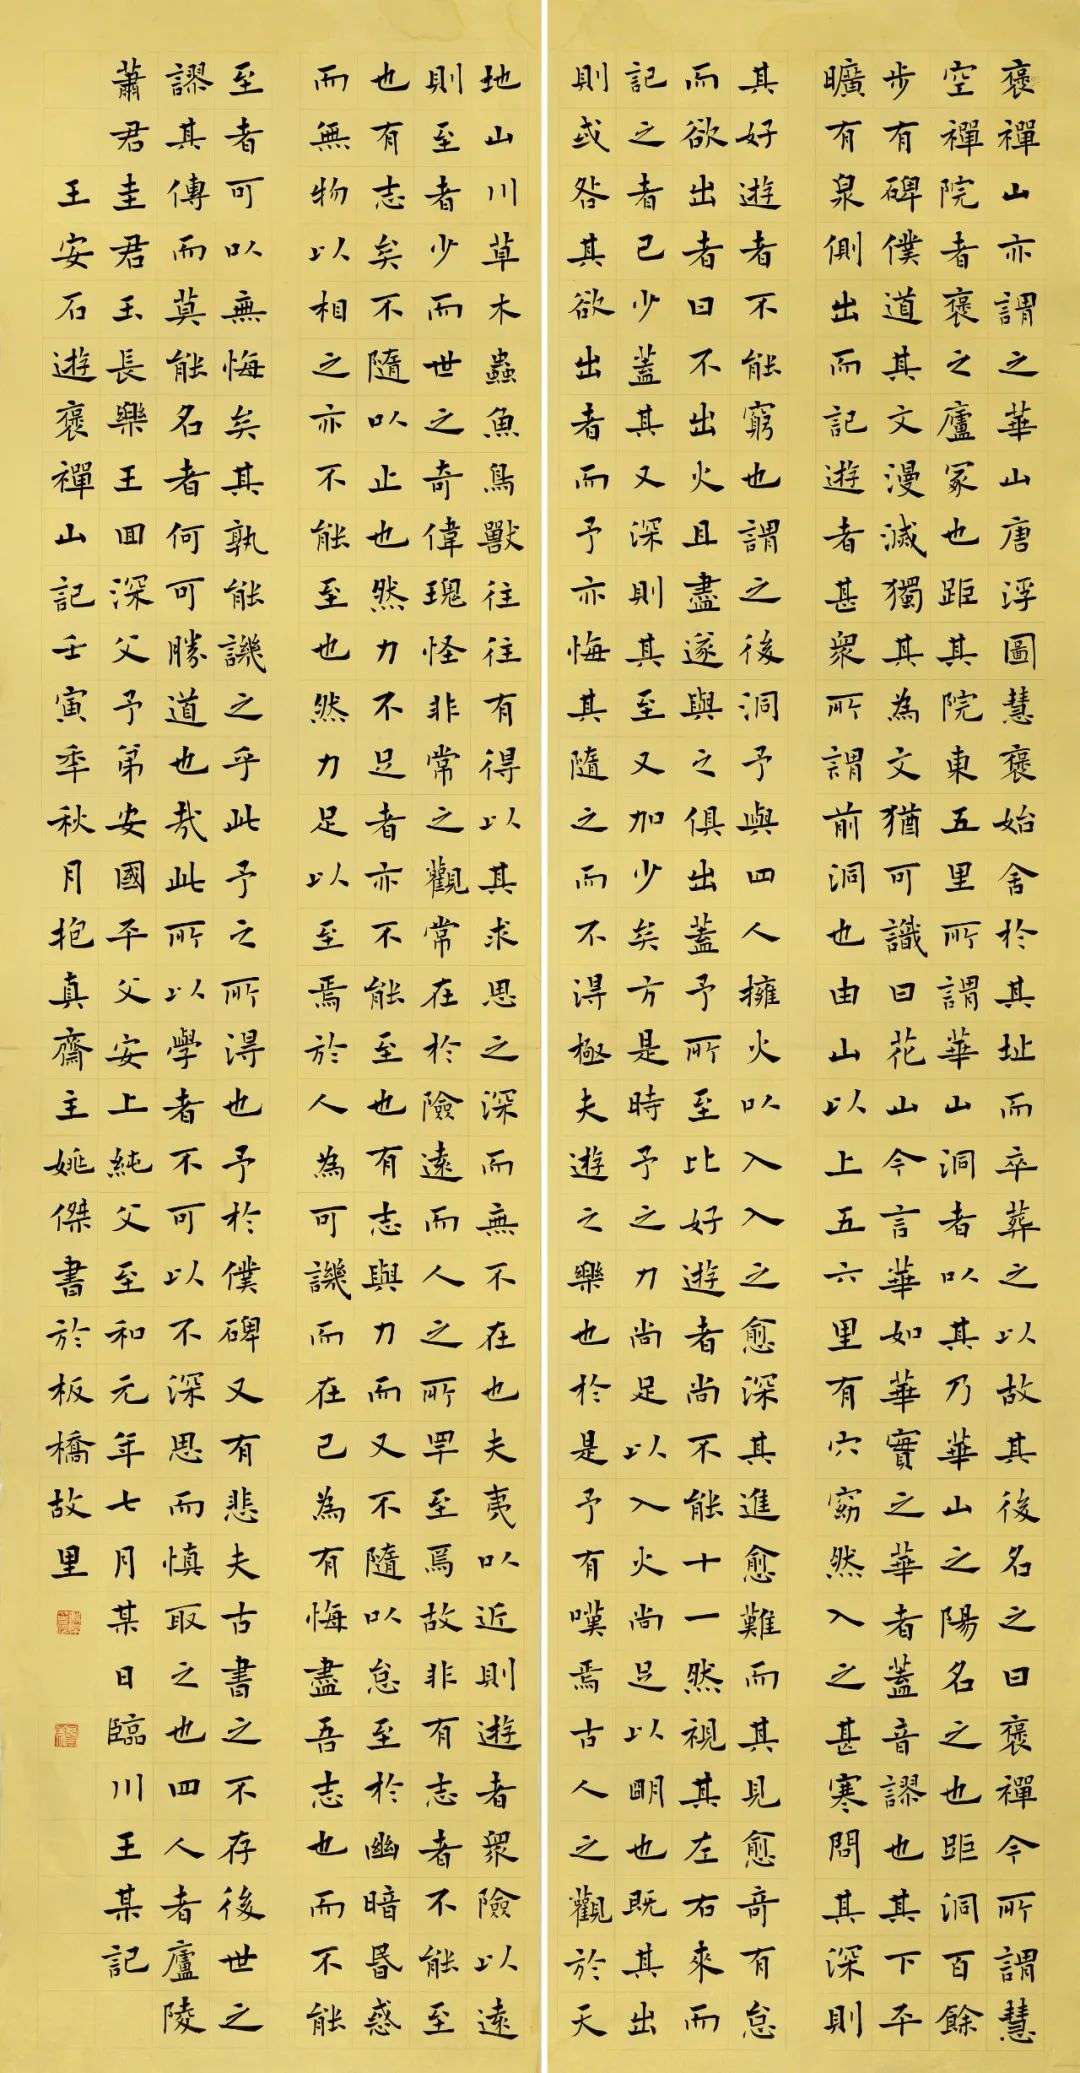 褒禪山亦謂之華山唐浮圖慧褒始舍於其址而卒葬之以故其後名之曰褒禪今所謂慧
空禪院者褒之廬冢也距其院東五里所謂華山洞者以其乃華山之陽名之也距洞百餘
步有碑僕道其文漫滅獨其為文猶可識曰花山今言華如華實之華者蓋音謬也其下平
曠有泉側出而記遊者甚眾所謂前洞也由山以上五六里有穴窈然入之甚寒問其深則
其好遊者不能窮也謂之後洞予與四人擁火以入入之愈深其進愈難而其見愈奇有怠
而欲出者曰不出火且盡遂與之俱出蓋予所至比好遊者尚不能十一然視其左右來而
記之者已少蓋其又深則其至又加少矣方是時予之力尚足以入火尚足以明也既其出
則或咎其欲出者而予亦悔其隨之而不得極夫遊之樂也於是予有嘆焉古人之觀於天
地山川草木蟲魚鳥獸往往有得以其求思之深而無不在也夫夷以近則遊者眾險以遠
則至者少而世之奇偉瑰怪非常之觀常在於險遠而人之所罕至焉故非有志者不能至
也有志矣不隨以止也然力不足者亦不能至也有志與力而又不隨以怠至於幽暗昏惑
而無物以相之亦不能至也然力足以至焉於人為可譏而在己為有悔盡吾志也而不能
至者可以無悔矣其孰能譏之乎此予之所得也予於僕碑又有悲夫古書之不存後世之
謬其傳而莫能名者何可勝道也哉此所以學者不可以不深思而慎取之也四人者廬陵
蕭君圭君玉長樂王回深父予弟安國平父安上純父至和元年七月某日臨川王某記
王安石遊褒禪山記壬寅秊秋月抱真齋主姚傑書於板橋故里